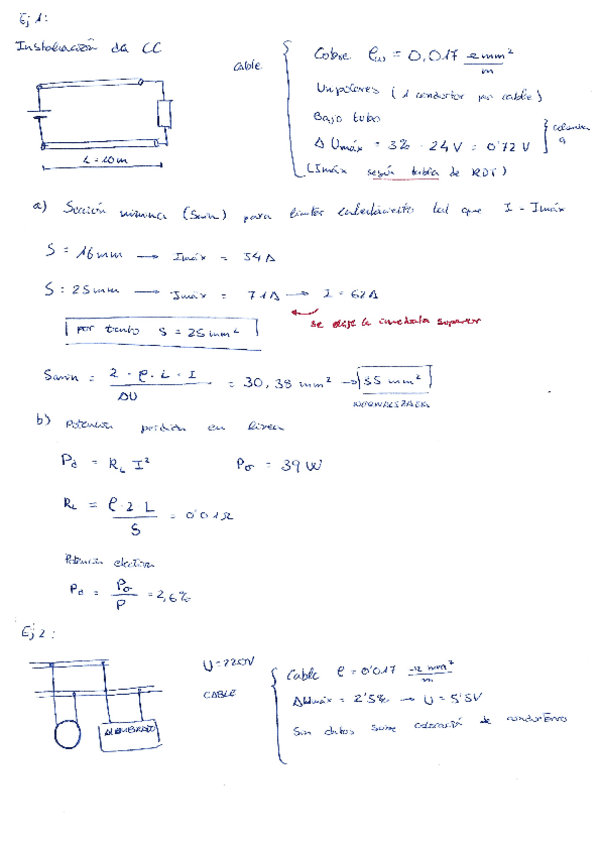 Ej 1:
Instalación de CC
Cable
Cobre ρcu = 0,017 Ω mm² / m
Unipolares (1 conductor por cable)
Bajo tubo
Δ Umáx = 3% · 24V = 0'72 V
} columna
(Imáx según tabla de RDI)
L = 10m
a) Sección mínima (Smin) para limitar calentamiento tal que I - Imáx
S = 16mm → Imáx = 54A
S = 25mm → Imáx = 71A → I = 62A
se elige la inmediata superior
por tanto S = 25 mm²
Smin = 2 · ρ · L · I / ΔU = 30,38 mm² → 35 mm²
NORMALIZADA
b) Potencia perdida en línea
Pd = RL I²
Pσ = 39 W
RL = ρ · 2 L / S = 0'01Ω
Potencia
Pd = Pσ / P = 2,6%
Ej 2:
U = 220V
CABLE
ALUMBRADO
Cable ρ = 0'017 Ω mm² / m
ΔUmáx = 2'5% → U = 5'5V
Sin datos sobre colocación de conductores